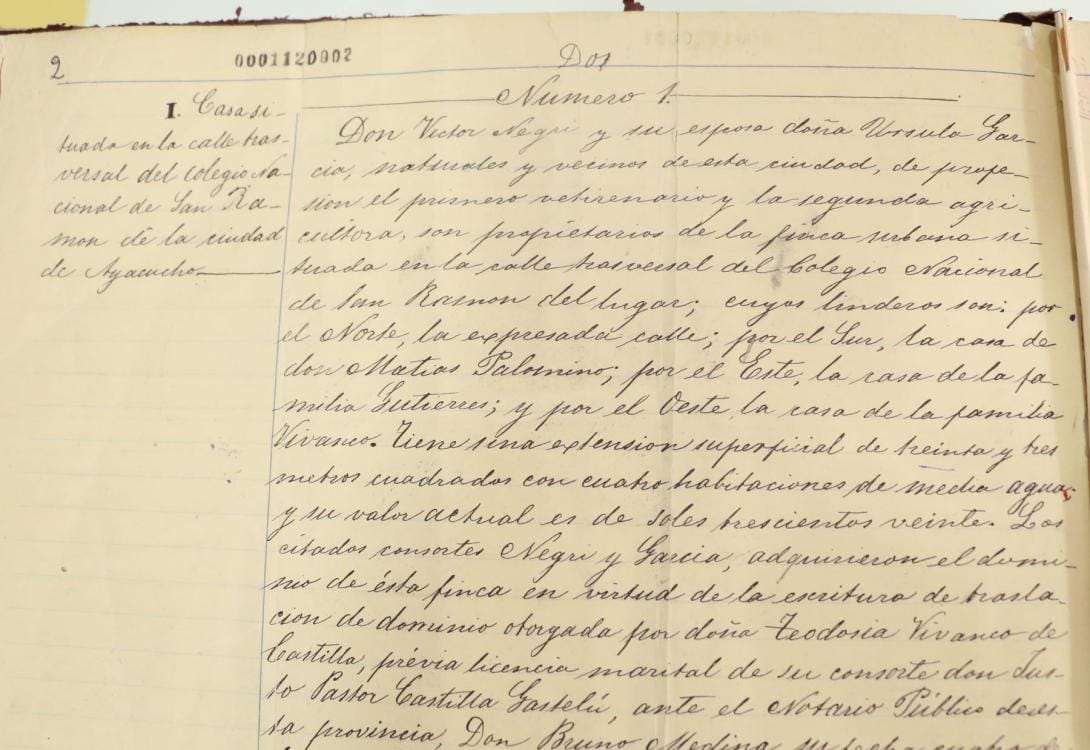 2
0001120002
Dos
Numero 1.
I. Casa si-
tuada en la calle tras-
versal del Colegio Na-
cional de San Ra-
mon de la ciudad
de Ayacucho
Don Victor Negri y su esposa doña Ursula Gar-
cia, naturales y vecinos de esta ciudad, de profe-
sion el primero vetirenario y la segunda agri-
cultora, son propietarios de la finca urbana si-
tuada en la calle trasversal del Colegio Nacional
de San Ramon del lugar; cuyos linderos son: por
el Norte, la expresada calle; por el Sur, la casa de
don Matias Palomino; por el Este, la casa de la fa-
milia Gutierres; y por el Oeste la casa de la familia
Vivanco. Tiene una extension superficial de treinta y tres
metros cuadrados con cuatro habitaciones de media agua;
y su valor actual es de soles trescientos veinte. Los
citados consortes Negri y Garcia, adquirieron el domi-
nio de ésta finca en virtud de la escritura de trasla-
cion de dominio otorgada por doña Teodosia Vivanco de
Castilla, prévia licencia marital de su consorte don Jus-
to Pastor Castilla Gastelú, ante el Notario Público de es-
ta provincia, Don Bruno Medina su fecha cuatro de